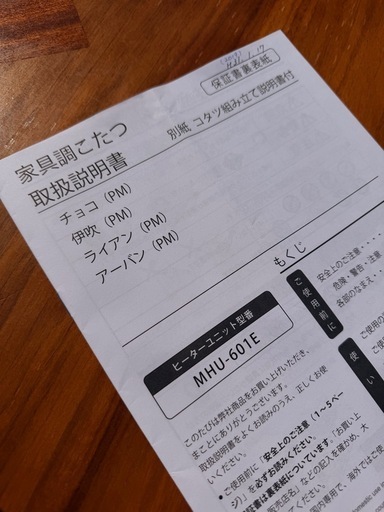 保証書裏表紙
家具調こたつ
取扱説明書
別紙 コタツ組み立て説明書付
チョコ（PM）
伊吹（PM）
ライアン（PM）
アーバン（PM）
もくじ
ご使用前に
安全上のご注意・・・・
危険・警告・注意
各部のなまえ・・・
ヒーターユニット型番
MHU-601E
このたびは弊社商品をお買い上げいただき、
まことにありがとうございます。
取扱説明書をよくお読みのうえ、正しくお使
いください。
●ご使用前に「安全上のご注意（1～5ペー
ジ）」を必ずお読みください。
証書は裏表紙についています。